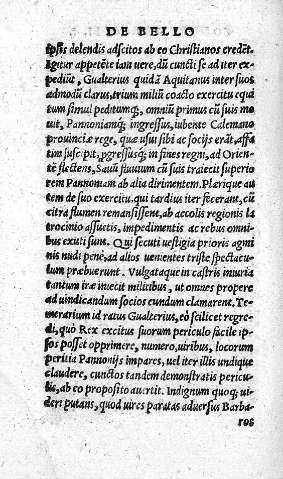 DE BELLO
ipsis delendis adscitos ab eo Christianos credẽt.
Igitur appetẽte iam uere, dũ cuncti se ad iter ex-
pediũt, Gualterius quidã Aquitanus inter suos
admodũ clarus, trium miliũ coacto exercitu equi
tum simul peditumq;, omniũ primus cũ suis mo
uit, Pannoniamq; ingressus, iubente Calemano
prouinciæ rege, quæ usui sibi ac socijs erãt, affa
tim suscipit, pgressusq; in fines regni, ad Orien-
tẽ flectens, Sauũ fluuium cũ suis traiecit superio
rem Pannoniam ab alia dirimentem. Plæriq; au
tem de suo exercitu, qui tardius iter fecerant, cũ
citra flumen remansissent, ab accolis regionis la
trocinio assuetis, impedimentis ac rebus omni-
bus exuti sunt. Qui secuti uestigia prioris agmi
nis nudi penè, ad alios uenientes triste spectacu-
lum præbuerunt. Vulgataque in castris iniuria
tantum iræ iniecit militibus, ut omnes propere
ad uindicandum socios eundum clamarent. Te-
merarium id ratus Gualterius, eò scilicet regre-
di, quò Rex excitus suorum periculo facile ip-
sos posset opprimere, numero, uiribus, locorum
peritia Pannonijs impares, uel iter illis undique
claudere, cunctos tandem demonstratis pericu-
lis, ab eo proposito auertit. Indignum quoq; ui-
deri putans, quod uires paratas aduersus Barba-
ros